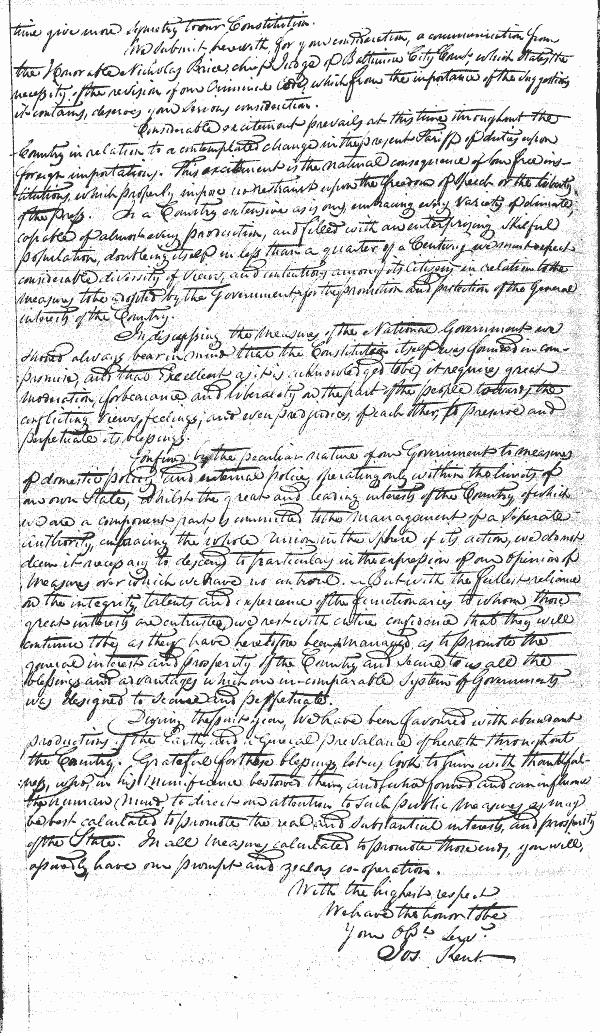 time give more symetry to our Constitution.
We submit herewith, for your consideration, a communication from
the Honorable Nicholas Brice, chief Judge of Baltimore City Court, which states the
necessity of the revision of our Criminal Code, which from the importance of the suggestions
it contains, deserves your serious consideration.
Considerable excitement prevails at this time throughout the
Country in relation to a contemplated change in the present Tariff of duties upon
foreign importations. This excitement is the natural consequence of our free ins-
titutions, which properly impose no restraint upon the freedom of speech or the liberty
of the press. In a Country extensive as is ours, embracing every variety of climate,
capable of almost every production, and filled with an enterprizing skilful
population, doubling itself in less than a quarter of a Century, we must expect
considerable diversity of views, and contentions among its citizens in relation to the
measures to be adopted by the Government for the promotion and protection of the General
interests of the Country.
In discussing the measures of the National Government we
should always bear in mind that the Constitution itself was founded in com-
promise, and that excellent as it is acknowledged to be, it requires great
moderation, forbearance and liberality on the part of the people towards the
conflicting views, feelings, and even prejudices, of each other, to preserve and
perpetuate its blessings.
Confined by the peculiar nature of our Government to measures
of domestic policy and internal police, operating only within the limits of
our own State, whilst the great and leading interests of the Country of which
we are a component part is committed to the management of a Seperate
authority, embracing the whole Union in the sphere of its action, we do not
deem it necessary to descend to particulars in the expression of our opinion of
measures over which we have no control. But with the fullest reliance
on the integrity, talents and experience of the functionaries to whom those
great interests are entrusted, we rest with entire confidence that they will
continue to be, as they have heretofore been managed, as to promote the
general interest and prosperity of the Country and secure to us all the
blessings and advantages which our in-comparable System of Government
was designed to secure and perpetuate.
During the past year, We have been favoured with abundant
productions of the Earth, and a General prevalance of health throughout
the Country. Grateful for these blessings, let us look to him with thankful-
ness, who, in his munificence bestowed them, and who formed and can influence
the human mind to direct our attention to such public measures as may
be best calculated to promote the real and substantial interests, and prosperity
of the State. In all measures calculated to promote those ends, you will,
assuredly have our prompt and zealous co-operation.
With the highest respect
We have the honor to be
Your Obt. Servt.
Jos. Kent